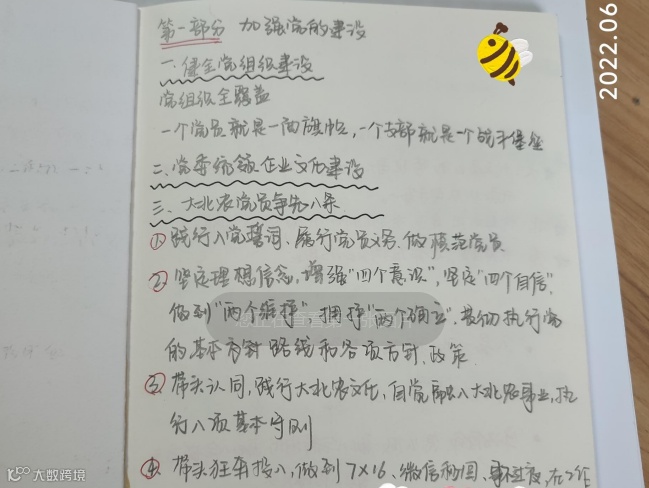 第一部分 加强党的建设
一、健全党组织建设
党组织全覆盖
一个党员就是一面旗帜，一个支部就是一个战斗堡垒
二、党委统领企业文化建设
三、大北农党员争先八条
① 践行入党誓词、履行党员义务、做模范党员
② 坚定理想信念，增强"四个意识"，坚定"四个自信"，
做到"两个维护"，拥护"两个确立"，贯彻执行党
的基本方针路线和各项方针、政策.
③ 带头认同，践行大北农文化，自觉融入大北农事业，执
行八项基本守则
④ 带头狂奔投入，做到7×16、微信秒回、事不过夜，在工作
2022.06
大数跨境